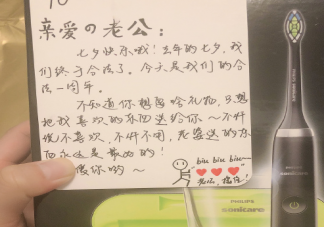 To
亲爱の老公：
七夕快乐哦！去年的七夕，我
们终于合法了。今天是我们的合
法一周年。
不知道你想要啥礼物，只想
把我喜欢的东西送给你～不许
说不喜欢，不许不用，老婆送的东
西永远是最好的！
爱你的～
biu biu biu~~
老公，接住！
PHILIPS
sonicare